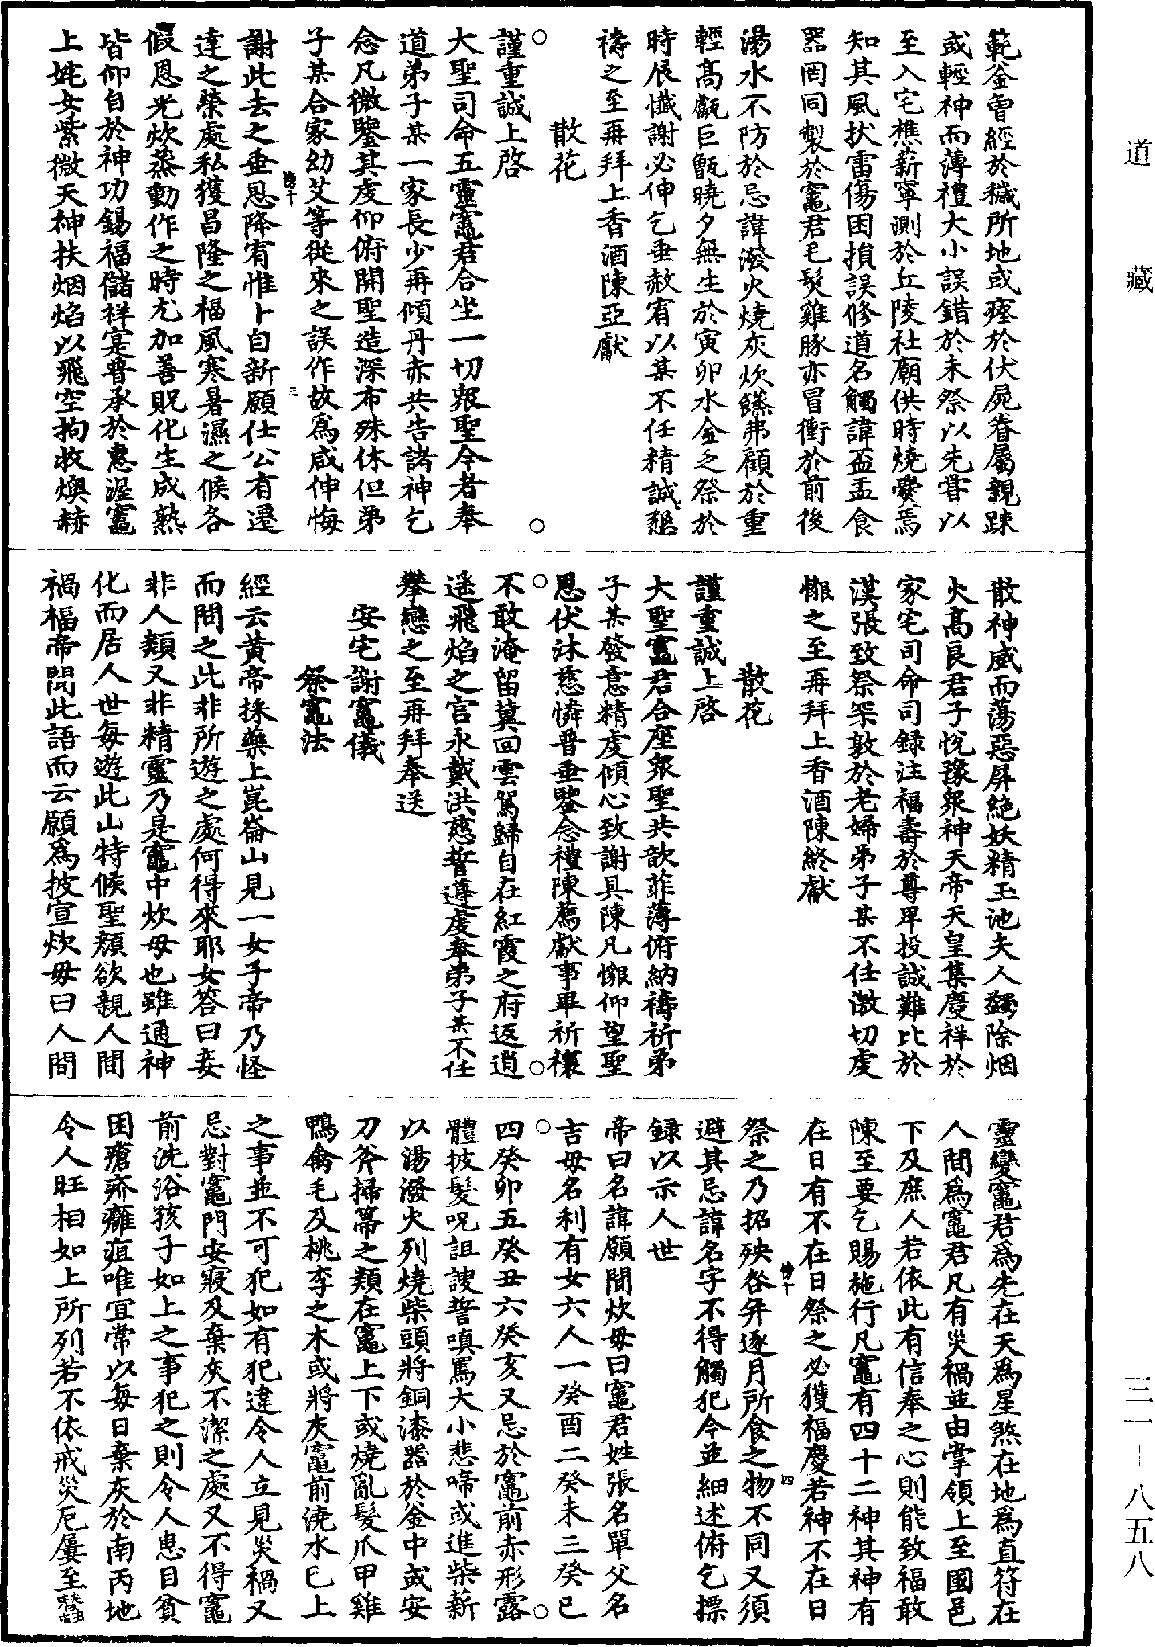 道藏
三一－八五八
範釜曾經於穢所地或瘞於伏屍眷屬親踈
或輕神而薄禮大小誤錯於未祭以先嘗以
至入宅樵薪寧測於丘陵社廟供時燒爨焉
知其風扙雷傷困損誤修道名觸諱盃盂食
器罔同製於竈君毛髮雞豚亦冒衝於前後
湯水不防於忌諱潑火燒灰炊鐥弗顧於重
輕高甗巨甑曉夕無生於寅卯水金乏祭於
時辰懺謝必伸乞垂赦宥以某不任精誠懇
禱之至再拜上香酒陳亞獻
散花
謹重誠上啓
大聖司命五靈竈君合坐一切眾聖今者奉
道弟子某一家長少再傾丹赤共告諸神乞
念凡微鑒其虔仰俯開聖造深布殊休但弟
子某合家幼艾等從來之誤作故為咸伸悔
謝此去之垂恩降宥惟卜自新願仕公有遷
達之榮處私獲昌隆之福風寒暑濕之候各
假恩光炊蒸動作之時尤加善貺化生成熟
皆仰自於神功錫福儲祥寔普承於惠渥竈
上姹女紫微天神扶烟焰以飛空拘收煥赫
散神威而蕩惡屏絕妖精玉池夫人蠲除烟
火高良君子悅豫眾神天帝天皇集慶祥於
家宅司命司録注福壽於尊卑投誠難比於
漢張致祭槩敦於老婦弟子某不任激切虔
懇之至再拜上香酒陳終獻
散花
謹重誠上啓
大聖竈君合座眾聖共歆菲薄俯納禱祈弟
子某發意精虔傾心致謝具陳凡懇仰望聖
恩伏沐慈憐普垂鑒念禮陳薦獻事畢祈禳
不敢淹留冀回雲駕歸自在紅霞之府返逍
遥飛焰之宫永戴洪慈誓遵虔奉弟子某不任
攀戀之至再拜奉送
安宅謝竈儀
祭竈法
經云黃帝採藥上崑崙山見一女子帝乃怪
而問之此非所遊之處何得來耶女答曰妾
非人類又非精靈乃是竈中炊母也雖通神
化而居人世每遊此山特候聖顏欲親人間
禍福帝聞此語而云願為披宣炊母曰人間
靈變竈君為先在天為星煞在地為直符在
人間為竈君凡有災禍並由掌領上至國邑
下及庶人若依此有信奉之心則能致福敢
陳至要乞賜施行凡竈有四十二神其神有
在日有不在日祭之必獲福慶若神不在日
祭之乃招殃咎年逐月所食之物不同又須
避其忌諱名字不得觸犯今並細述俯乞摽
録以示人世
帝曰名諱願聞炊母曰竈君姓張名單父名
吉母名利有女六人一癸酉二癸未三癸巳
四癸卯五癸丑六癸亥又忌於竈前赤形露
體披髮呪詛謾誓嗔罵大小悲啼或進柴薪
以湯潑火列燒柴頭將銅漆器於釜中或安
刀斧掃箒之類在竈上下或燒亂髮爪甲雞
鴨禽毛及桃李之木或將灰竈前澆水已上
之事並不可犯如有犯違令人立見災禍又
忌對竈門安寢及棄灰不潔之處又不得竈
前洗浴孩子如上之事犯之則令人患目貧
困瘡疥癰疽唯宜常以每日棄灰於南丙地
令人旺相如上所列若不依戒災厄屢至蠶